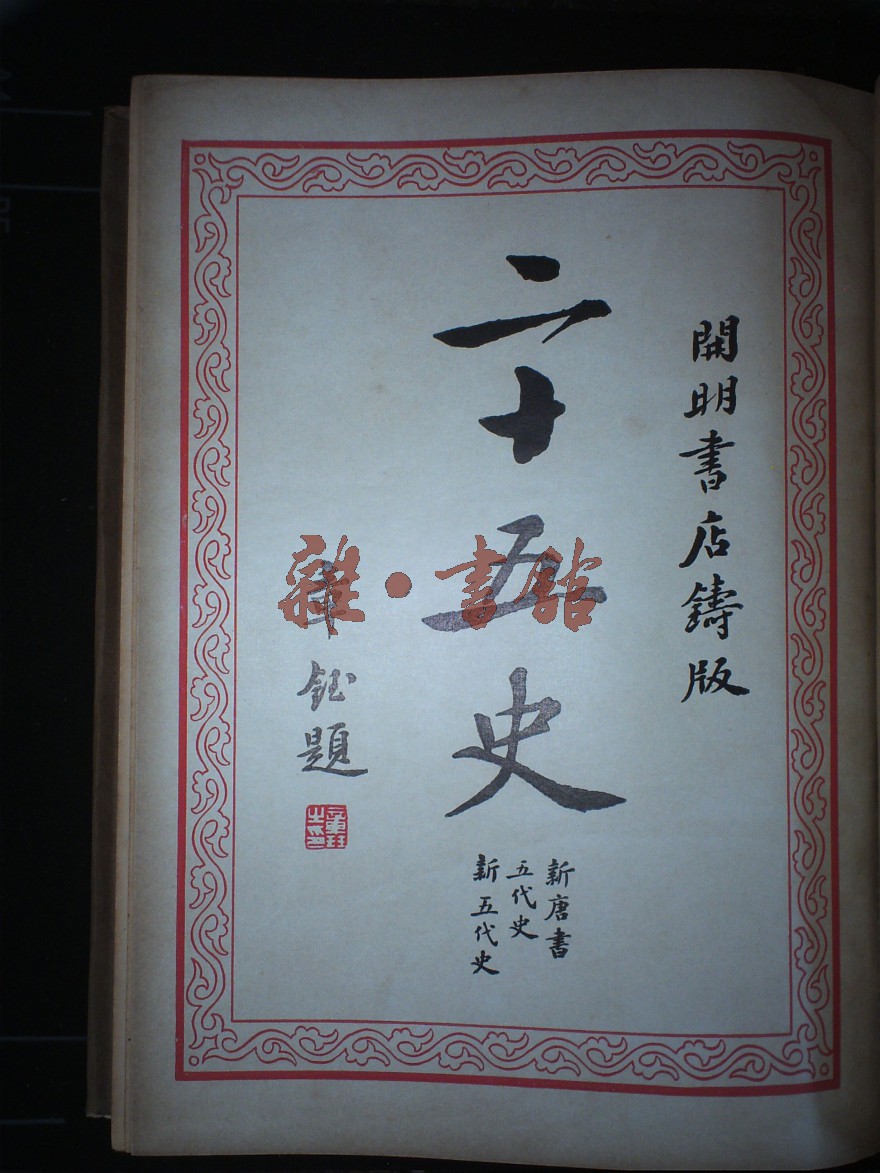 開明書店鑄版
二十五史
新唐書
五代史
新五代史
章鈺題
雜·書館